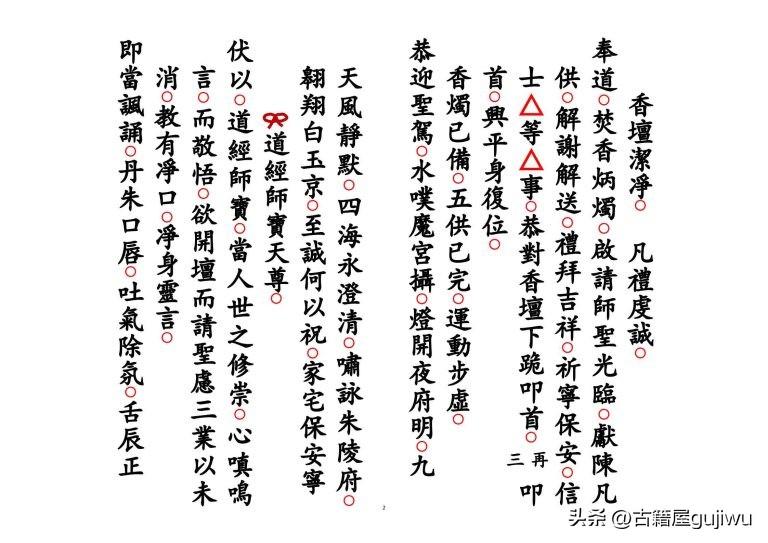 香壇潔凈○　凡禮虔誠○
奉道○焚香炳燭○啟請師聖光臨○獻陳凡
供○解謝解送○禮拜吉祥○祈寧保安○信
士△等△事○恭對香壇下跪叩首○再三叩
首○興平身復位○
香燭已備○五供已完○運動步虛○
恭迎聖駕○水噗魔宮攝○燈開夜府明○九
天風靜默○四海永澄清○嘯詠朱陵府○
翱翔白玉京○至誠何以祝○家宅保安寧
道經師寶天尊○
伏以○道經師寶○當人世之修崇○心嗔鳴
言○而敬悟○欲開壇而請聖慮三業以未
消○教有凈口○凈身靈言○
即當諷誦○丹朱口唇○吐氣除氛○舌辰正
2
头条 @古籍屋gujiwu